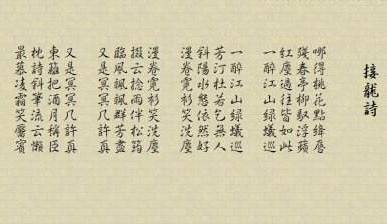 接龍詩
哪得桃花點絳唇
殘春亭柳馭浮蘋
紅塵過往皆如此
一醉江山綠蟻巡
一醉江山綠蟻巡
芳汀杜若乞無人
斜陽水依然好
漫卷霓衫笑洗塵
漫卷霓衫笑洗塵
掇云捻雨伴松筠
臨風颯颯群芳盡
又是冥冥几許真
又是冥冥几許真
東籬把酒月稱臣
枕詩斜筆流云懶
最慕凌霜笑屬賓